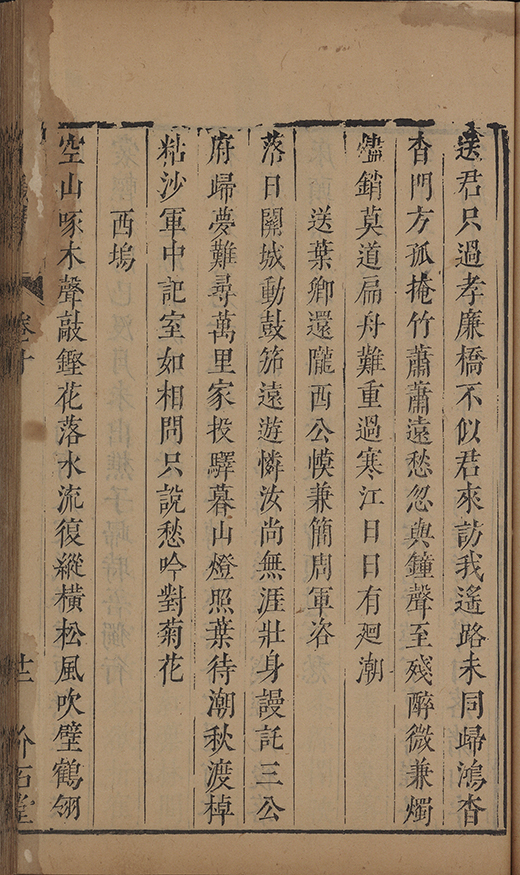 送君只過孝廉橋不似君來訪我遙路未同歸鴻杳
杳門方孤掩竹蕭蕭遠愁忽與鐘聲至殘醉微兼燭
燼銷莫道扁舟難重過寒江日日有廻潮
送葉卿還隴西公幙兼簡周軍咨
落日關城動鼓笳遠遊憐汝尚無涯壯身謾託三公
府歸夢難尋萬里家投驛暮山燈照葉待潮秋渡棹
粘沙軍中記室如相問只說愁吟對菊花
西塢
空山啄木聲敲鏗花落水流復縱橫松風吹壁鶴翎
介石堂